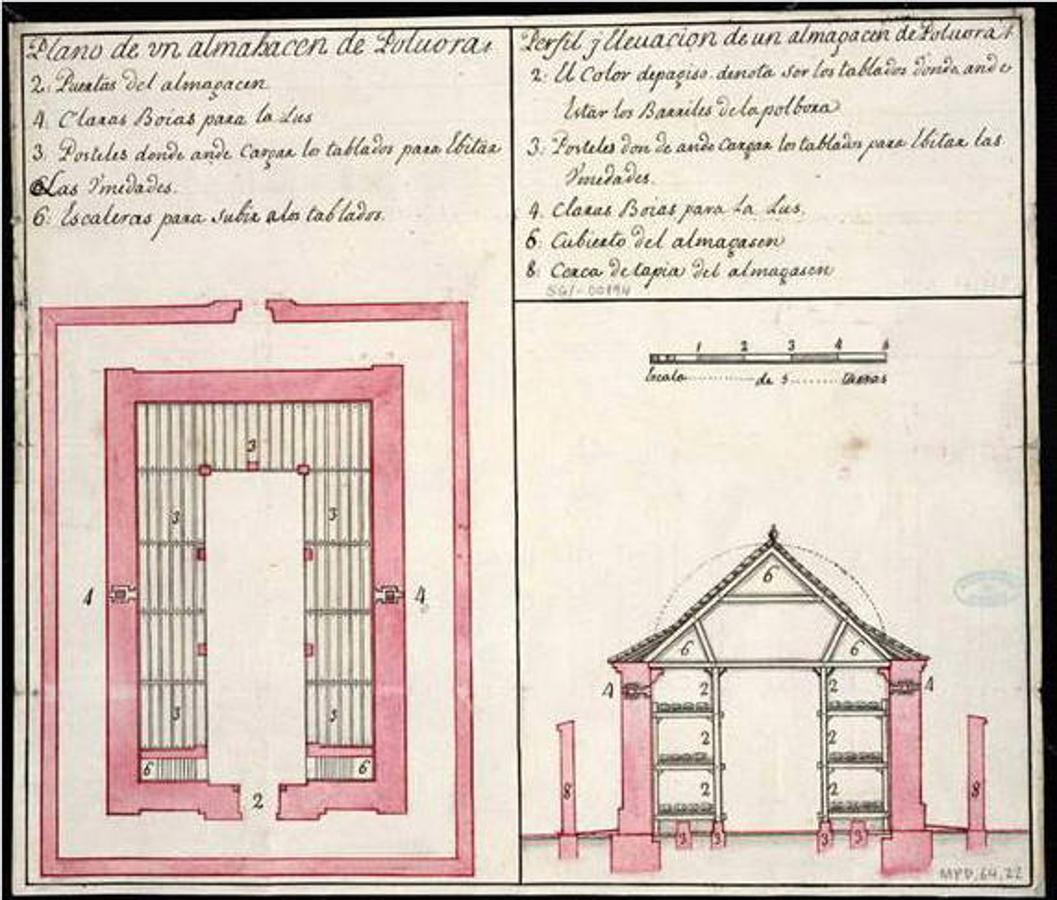 Plano de vn almahacen de Poluora
2: Puertas del almaçacen
4. Claras Boias para la Lus
3. Posteles donde ande Cargar los tablados para Ebitar
Las Vmedades.
6: Escaleras para subir a los tablados.
3
3
3
4
4
3
3
6
6
2
Perfil j Eleuacion de un almaçacen de Poluora
2: El Color depagiso denota ser los tablados donde ande
Estar los Barriles de la polbora
3: Posteles don de ande Cargar los tablados para Ebitar las
Vmedades.
4. Claras Boias para La Lus.
6: Cubierto del almaçasen
8: Cerca de tapia del almaçasen
SGI-00894
1 2 3 4
Escala de 5 Uaras
6
6 6
4 2 2 4
2 2
2 2
8 8
3 3 3 3
MPD, 64, 22